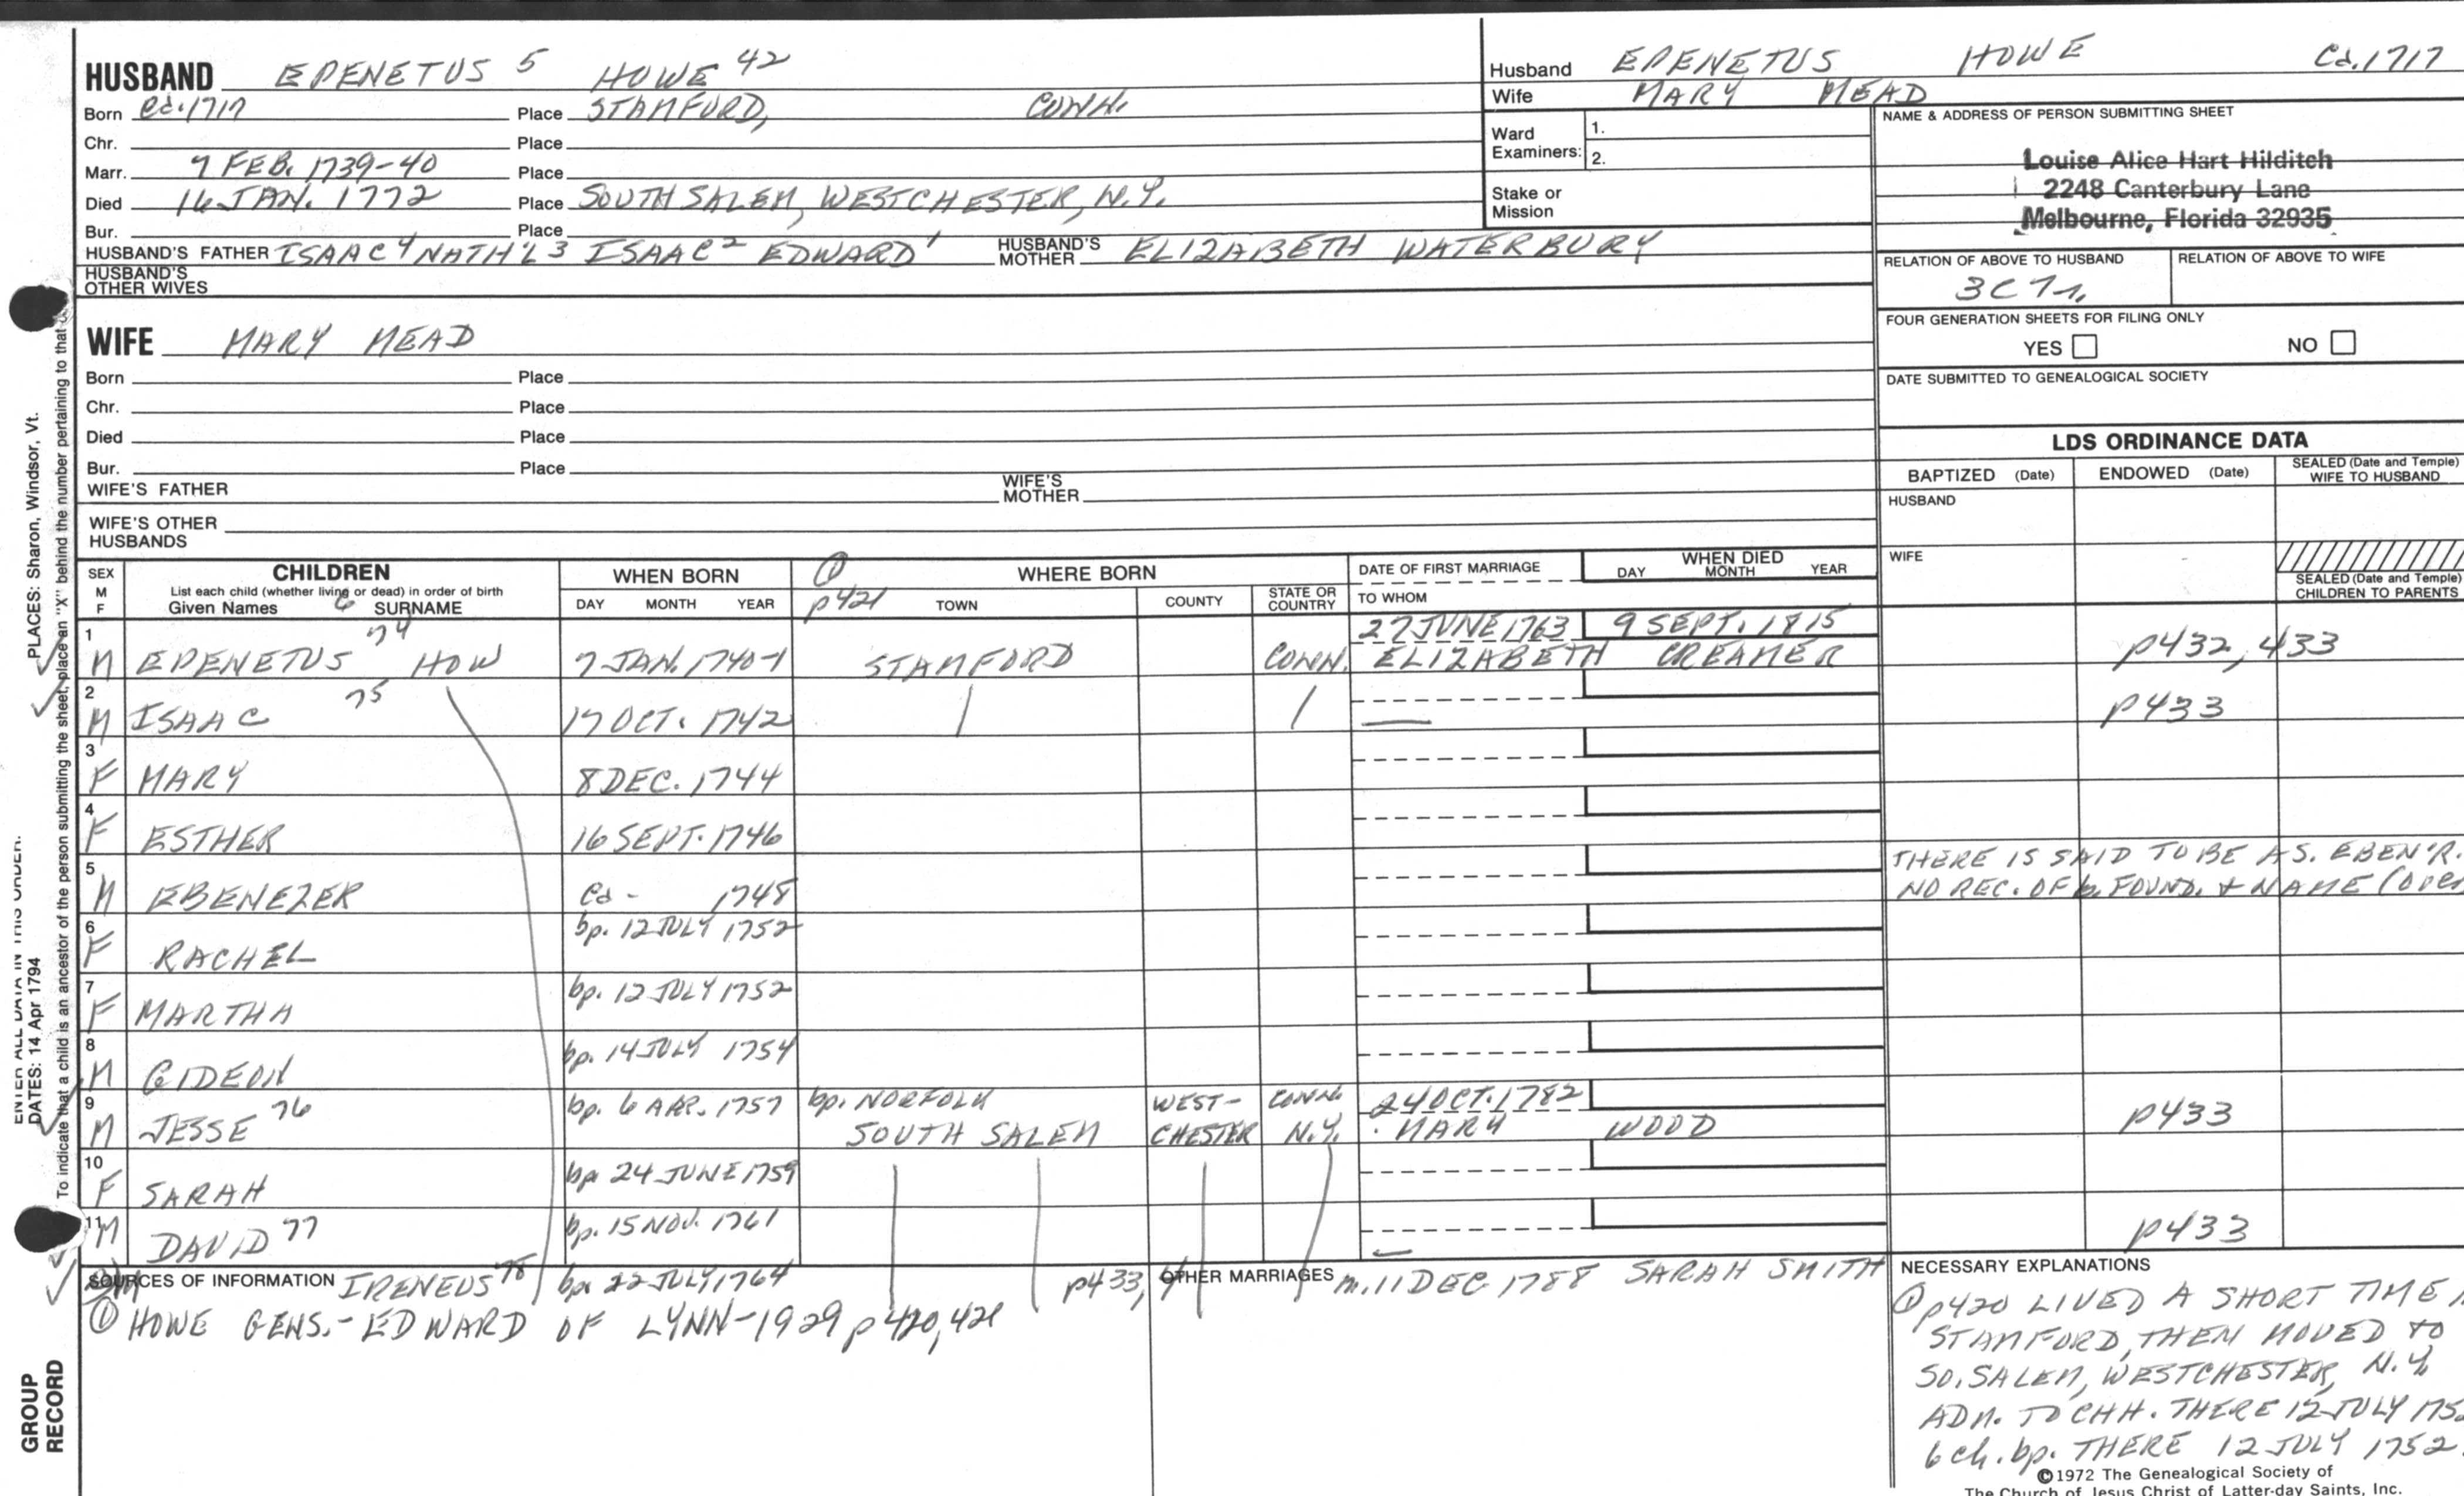 HUSBAND EPENETUS 5 HOWE 42
Born Ca. 1717 Place STAMFORD, CONN.
Chr. Place
Marr. 7 FEB. 1739-40 Place
Died 16 JAN. 1772 Place SOUTH SALEM, WESTCHESTER, N.Y.
Bur. Place
HUSBAND'S FATHER ISAAC 4 NATH'L 3 ISAAC 2 EDWARD 1 HUSBAND'S MOTHER ELIZABETH WATERBURY
HUSBAND'S OTHER WIVES
WIFE MARY MEAD
Born Place
Chr. Place
Died Place
Bur. Place
WIFE'S FATHER WIFE'S MOTHER
WIFE'S OTHER HUSBANDS
Husband EPENETUS HOWE Ca. 1717
Wife MARY MEAD
Ward Examiners: 1.
2.
Stake or Mission
NAME & ADDRESS OF PERSON SUBMITTING SHEET
Louise Alice Hart Hilditch
2248 Canterbury Lane
Melbourne, Florida 32935
RELATION OF ABOVE TO HUSBAND RELATION OF ABOVE TO WIFE
3C7r.
FOUR GENERATION SHEETS FOR FILING ONLY
YES NO
DATE SUBMITTED TO GENEALOGICAL SOCIETY
LDS ORDINANCE DATA
BAPTIZED (Date) ENDOWED (Date) SEALED (Date and Temple) WIFE TO HUSBAND
HUSBAND
WIFE
SEALED (Date and Temple) CHILDREN TO PARENTS
SEX M F CHILDREN WHEN BORN ① p421 WHERE BORN DATE OF FIRST MARRIAGE WHEN DIED
List each child (whether living or dead) in order of birth
Given Names 6 SURNAME DAY MONTH YEAR TOWN COUNTY STATE OR COUNTRY TO WHOM DAY MONTH YEAR
1 M EPENETUS 74 HOW 7 JAN. 1740-1 STAMFORD CONN. 27 JUNE 1763 9 SEPT. 1815
ELIZABETH CREAMER p432, 433
2 M ISAAC 75 17 OCT. 1742 p433
3 F MARY 8 DEC. 1744
4 F ESTHER 16 SEPT. 1746
5 M EBENEZER Ca - 1748 THERE IS SAID TO BE A S. EBEN'R.
NO REC. OF b. FOUND. & NAME (over
6 F RACHEL bp. 12 JULY 1752
7 F MARTHA bp. 12 JULY 1752
8 M GIDEON bp. 14 JULY 1754
9 M JESSE 76 bp. 6 APR. 1757 bp. NORFOLK CONN. 24 OCT. 1782
SOUTH SALEM WEST-CHESTER N.Y. MARY WOOD p433
10 F SARAH bp. 24 JUNE 1759
11 M DAVID 77 bp. 15 NOV. 1761 p433
SOURCES OF INFORMATION IRENEUS 78 bp. 22 JULY 1764 p433, OTHER MARRIAGES m. 11 DEC. 1788 SARAH SMITH
① HOWE GENS. - EDWARD OF LYNN - 1929 p420, 421
NECESSARY EXPLANATIONS
① p420 LIVED A SHORT TIME
STAMFORD, THEN MOVED TO
SO. SALEM, WESTCHESTER, N.Y.
ADM. TO CHH. THERE 12 JULY 175
6 ch. bp. THERE 12 JULY 1752
©1972 The Genealogical Society of
The Church of Jesus Christ of Latter-day Saints, Inc.
PLACES: Sharon, Windsor, Vt.
ENTER ALL DATA IN THIS ORDER:
DATES: 14 Apr 1794
To indicate that a child is an ancestor of the person submitting the sheet, place an "X" behind the number pertaining to that
GROUP RECORD